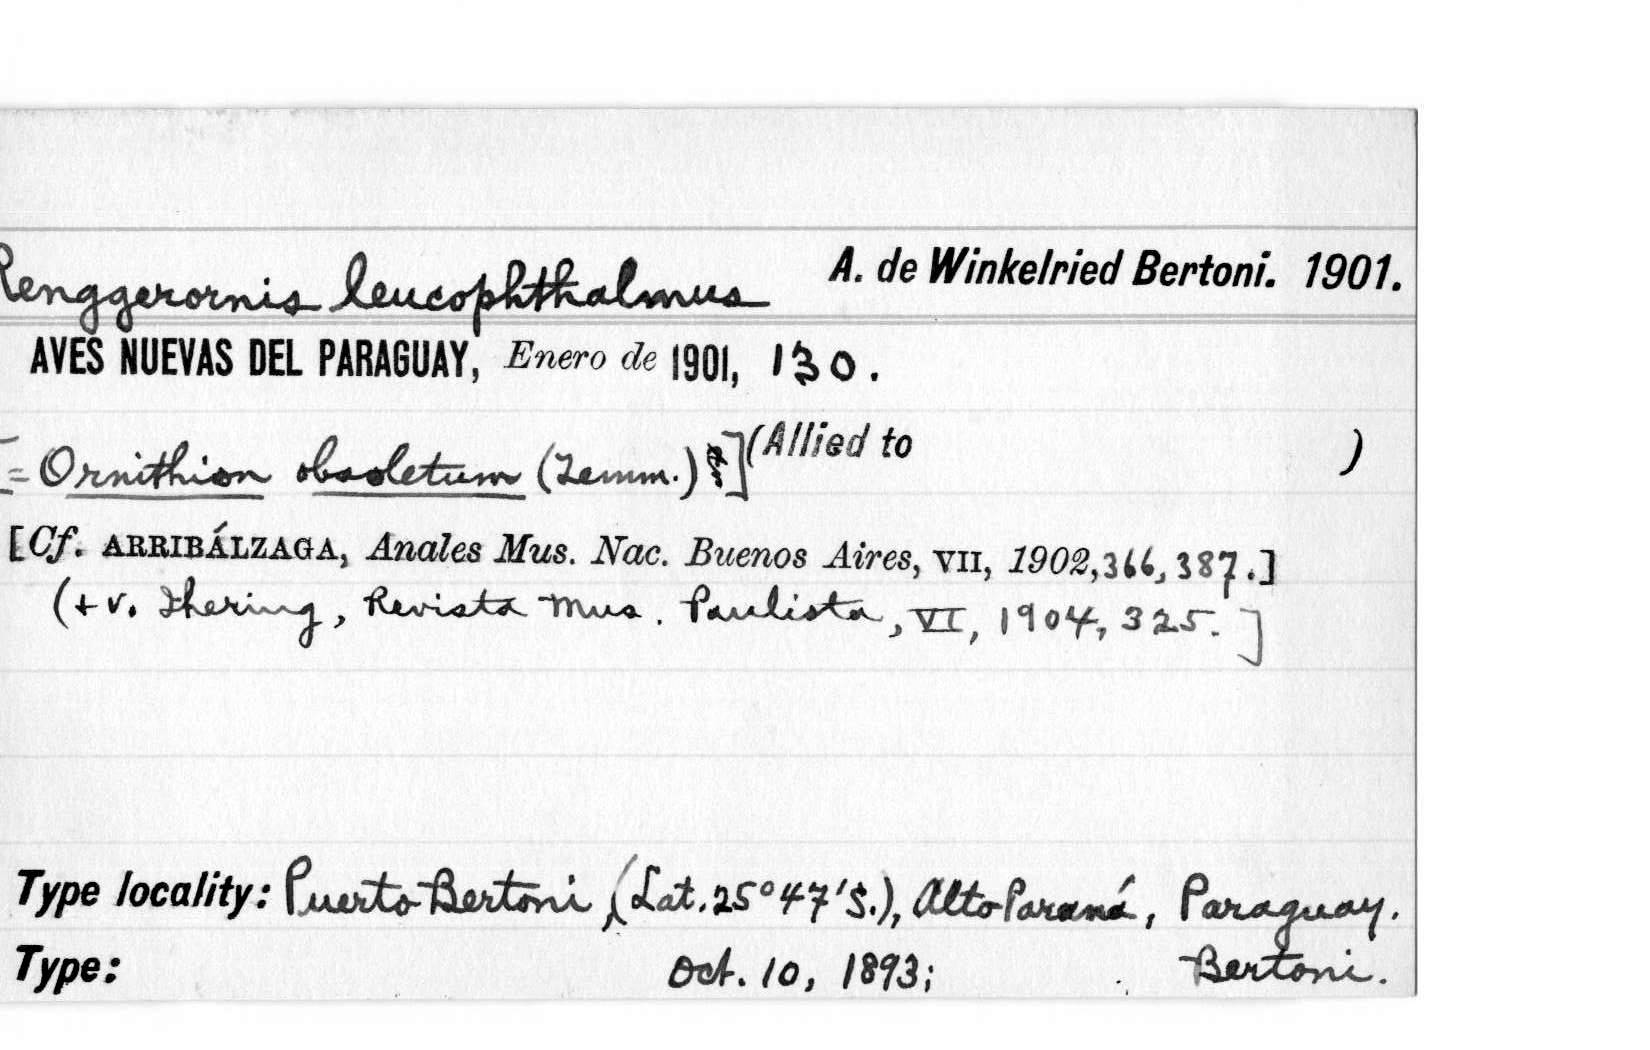 Renggerornis leucophthalmus A. de Winkelried Bertoni. 1901.
AVES NUEVAS DEL PARAGUAY, Enero de 1901, 130.
[= Ornithion obsoletum (Temm.)] (Allied to )
[Cf. ARRIBÁLZAGA, Anales Mus. Nac. Buenos Aires, VII, 1902, 366, 387.]
(+ v. Ihering, Revista Mus. Paulista, VI, 1904, 325.]
Type locality: Puerto Bertoni, (Lat. 25°47'S.), Alto Paraná, Paraguay.
Type: Oct. 10, 1893; Bertoni.